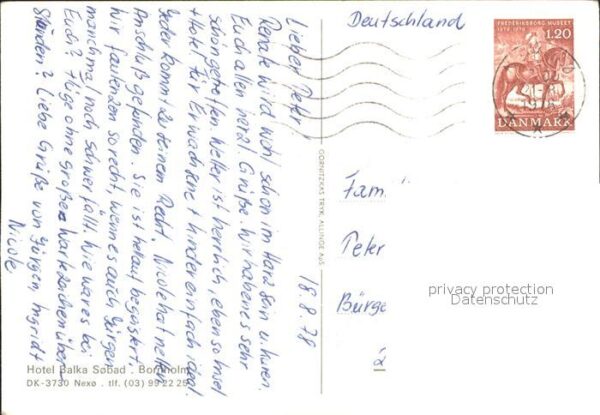 Deutschland
FREDERIKSBORG MUSEET
1878-1978
1.20
DANMARK
18.8.78
Lieber Peter!
Renate wird wohl schon im Harz sein u. kuren.
Euch allen herzl. Grüße. Wir haben es sehr
schön getroffen. Wetter ist herrlich, ebenso Insel
+ Hotel. Für Erwachsene + Kinder einfach ideal.
Jeder kommt zu seinem Recht. Nicole hat netten
Anschluß gefunden. Sie ist restlos begeistert.
Wir faulenzen so recht, wenn es auch Jürgen
manchmal noch schwer fällt. Wie war es bei
Euch? Flüge ohne große Wartezeiten über
Stunden? Liebe Grüße von Jürgen, Ingrid +
Nicole
GORNITZKAS TRYK, ALLINGE
Fam
Peter
Bürge
2
privacy protection
Datenschutz
Hotel Balka Søbad . Bornholm
DK-3730 Nexø . tlf. (03) 99 22 25